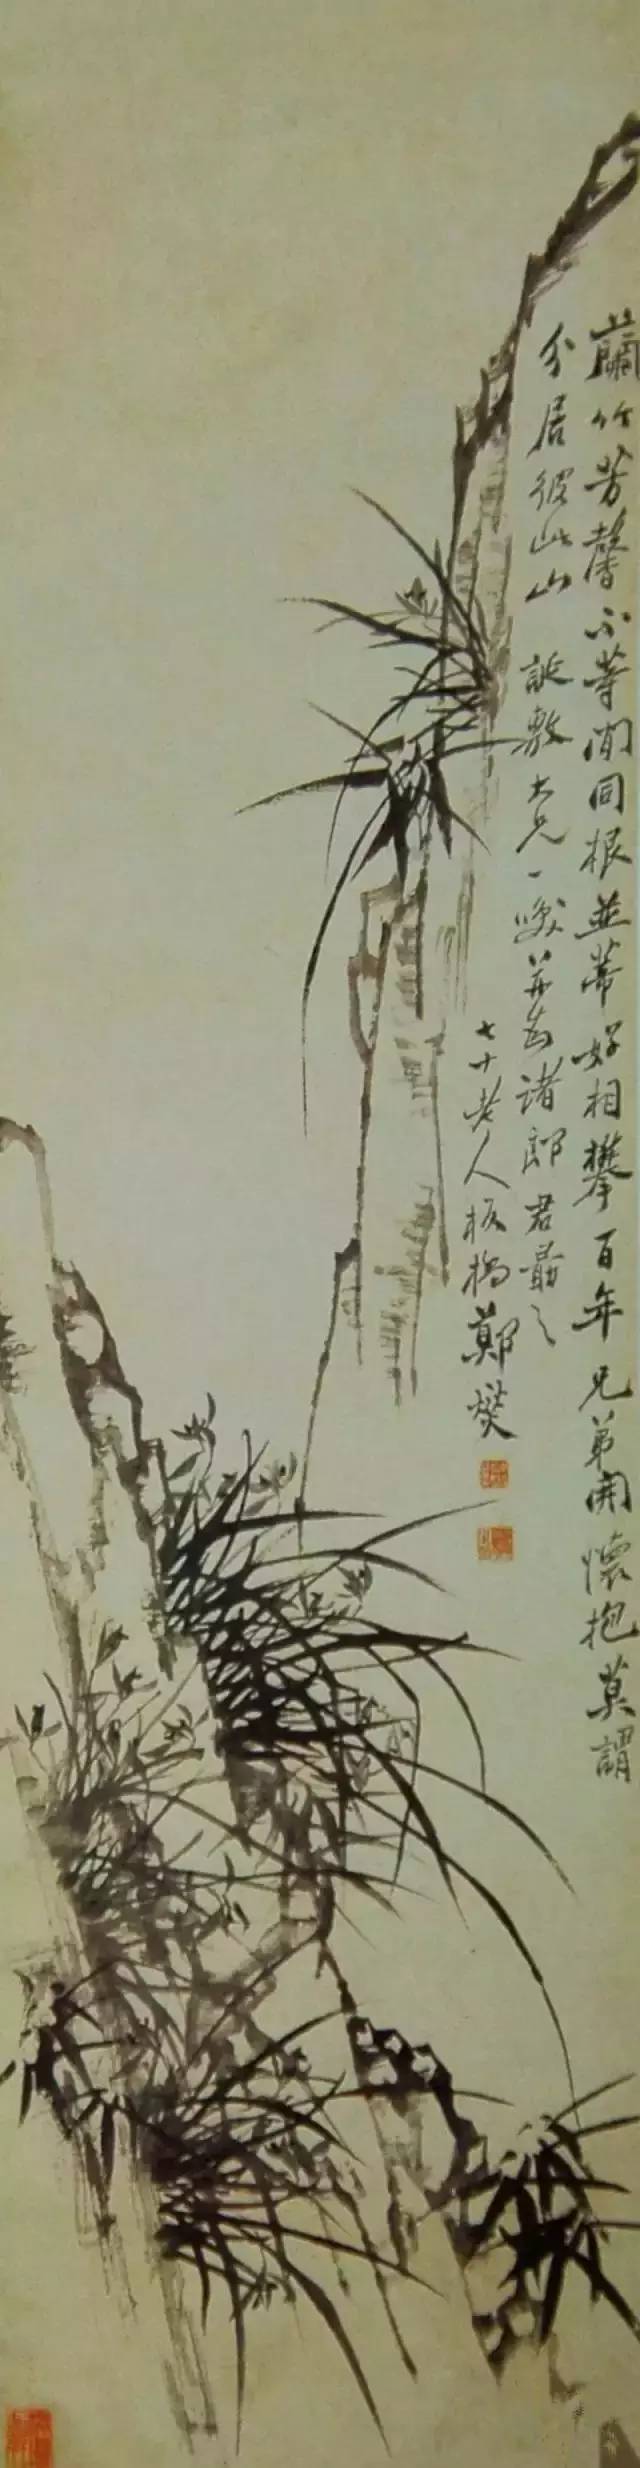 蘭竹芳馨不等閒同根並蒂好相攀百年兄弟開懷抱莫謂
分居彼此山 誕敷大兄一噱并為諸郎君勗之
七十老人板橋鄭燮